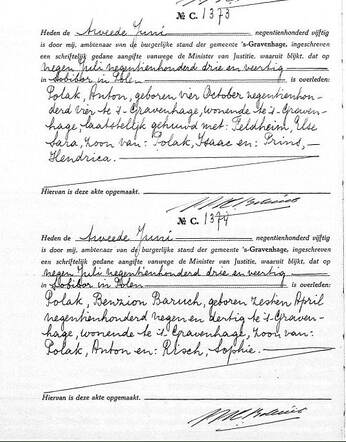 № C. 1373
Heden de tweede Juni negentienhonderd vijftig
is door mij, ambtenaar van de burgerlijke stand der gemeente 's-Gravenhage, ingeschreven
een schriftelijk gedane aangifte vanwege de Minister van Justitie, waaruit blijkt, dat op
negen Juli negentienhonderd drie en veertig
in Sobibor in Polen is overleden:
Polak, Anton, geboren vier October negentienhon-
derd vier te 's-Gravenhage, wonende te 's-Graven-
hage, laatstelijk gehuwd met: Feldheim, Else
Sara, zoon van: Polak, Isaac en: Prins,
Hendrica.
Hiervan is deze akte opgemaakt.
№ C. 1374
Heden de tweede Juni negentienhonderd vijftig
is door mij, ambtenaar van de burgerlijke stand der gemeente 's-Gravenhage, ingeschreven
een schriftelijk gedane aangifte vanwege de Minister van Justitie, waaruit blijkt, dat op
negen Juli negentienhonderd drie en veertig
in Sobibor in Polen is overleden:
Polak, Benzion Baruch, geboren zesten April
negentienhonderd negen en dertig te 's-Graven-
hage, wonende te 's-Gravenhage, zoon van:
Polak, Anton en: Risch, Sophie.
Hiervan is deze akte opgemaakt.